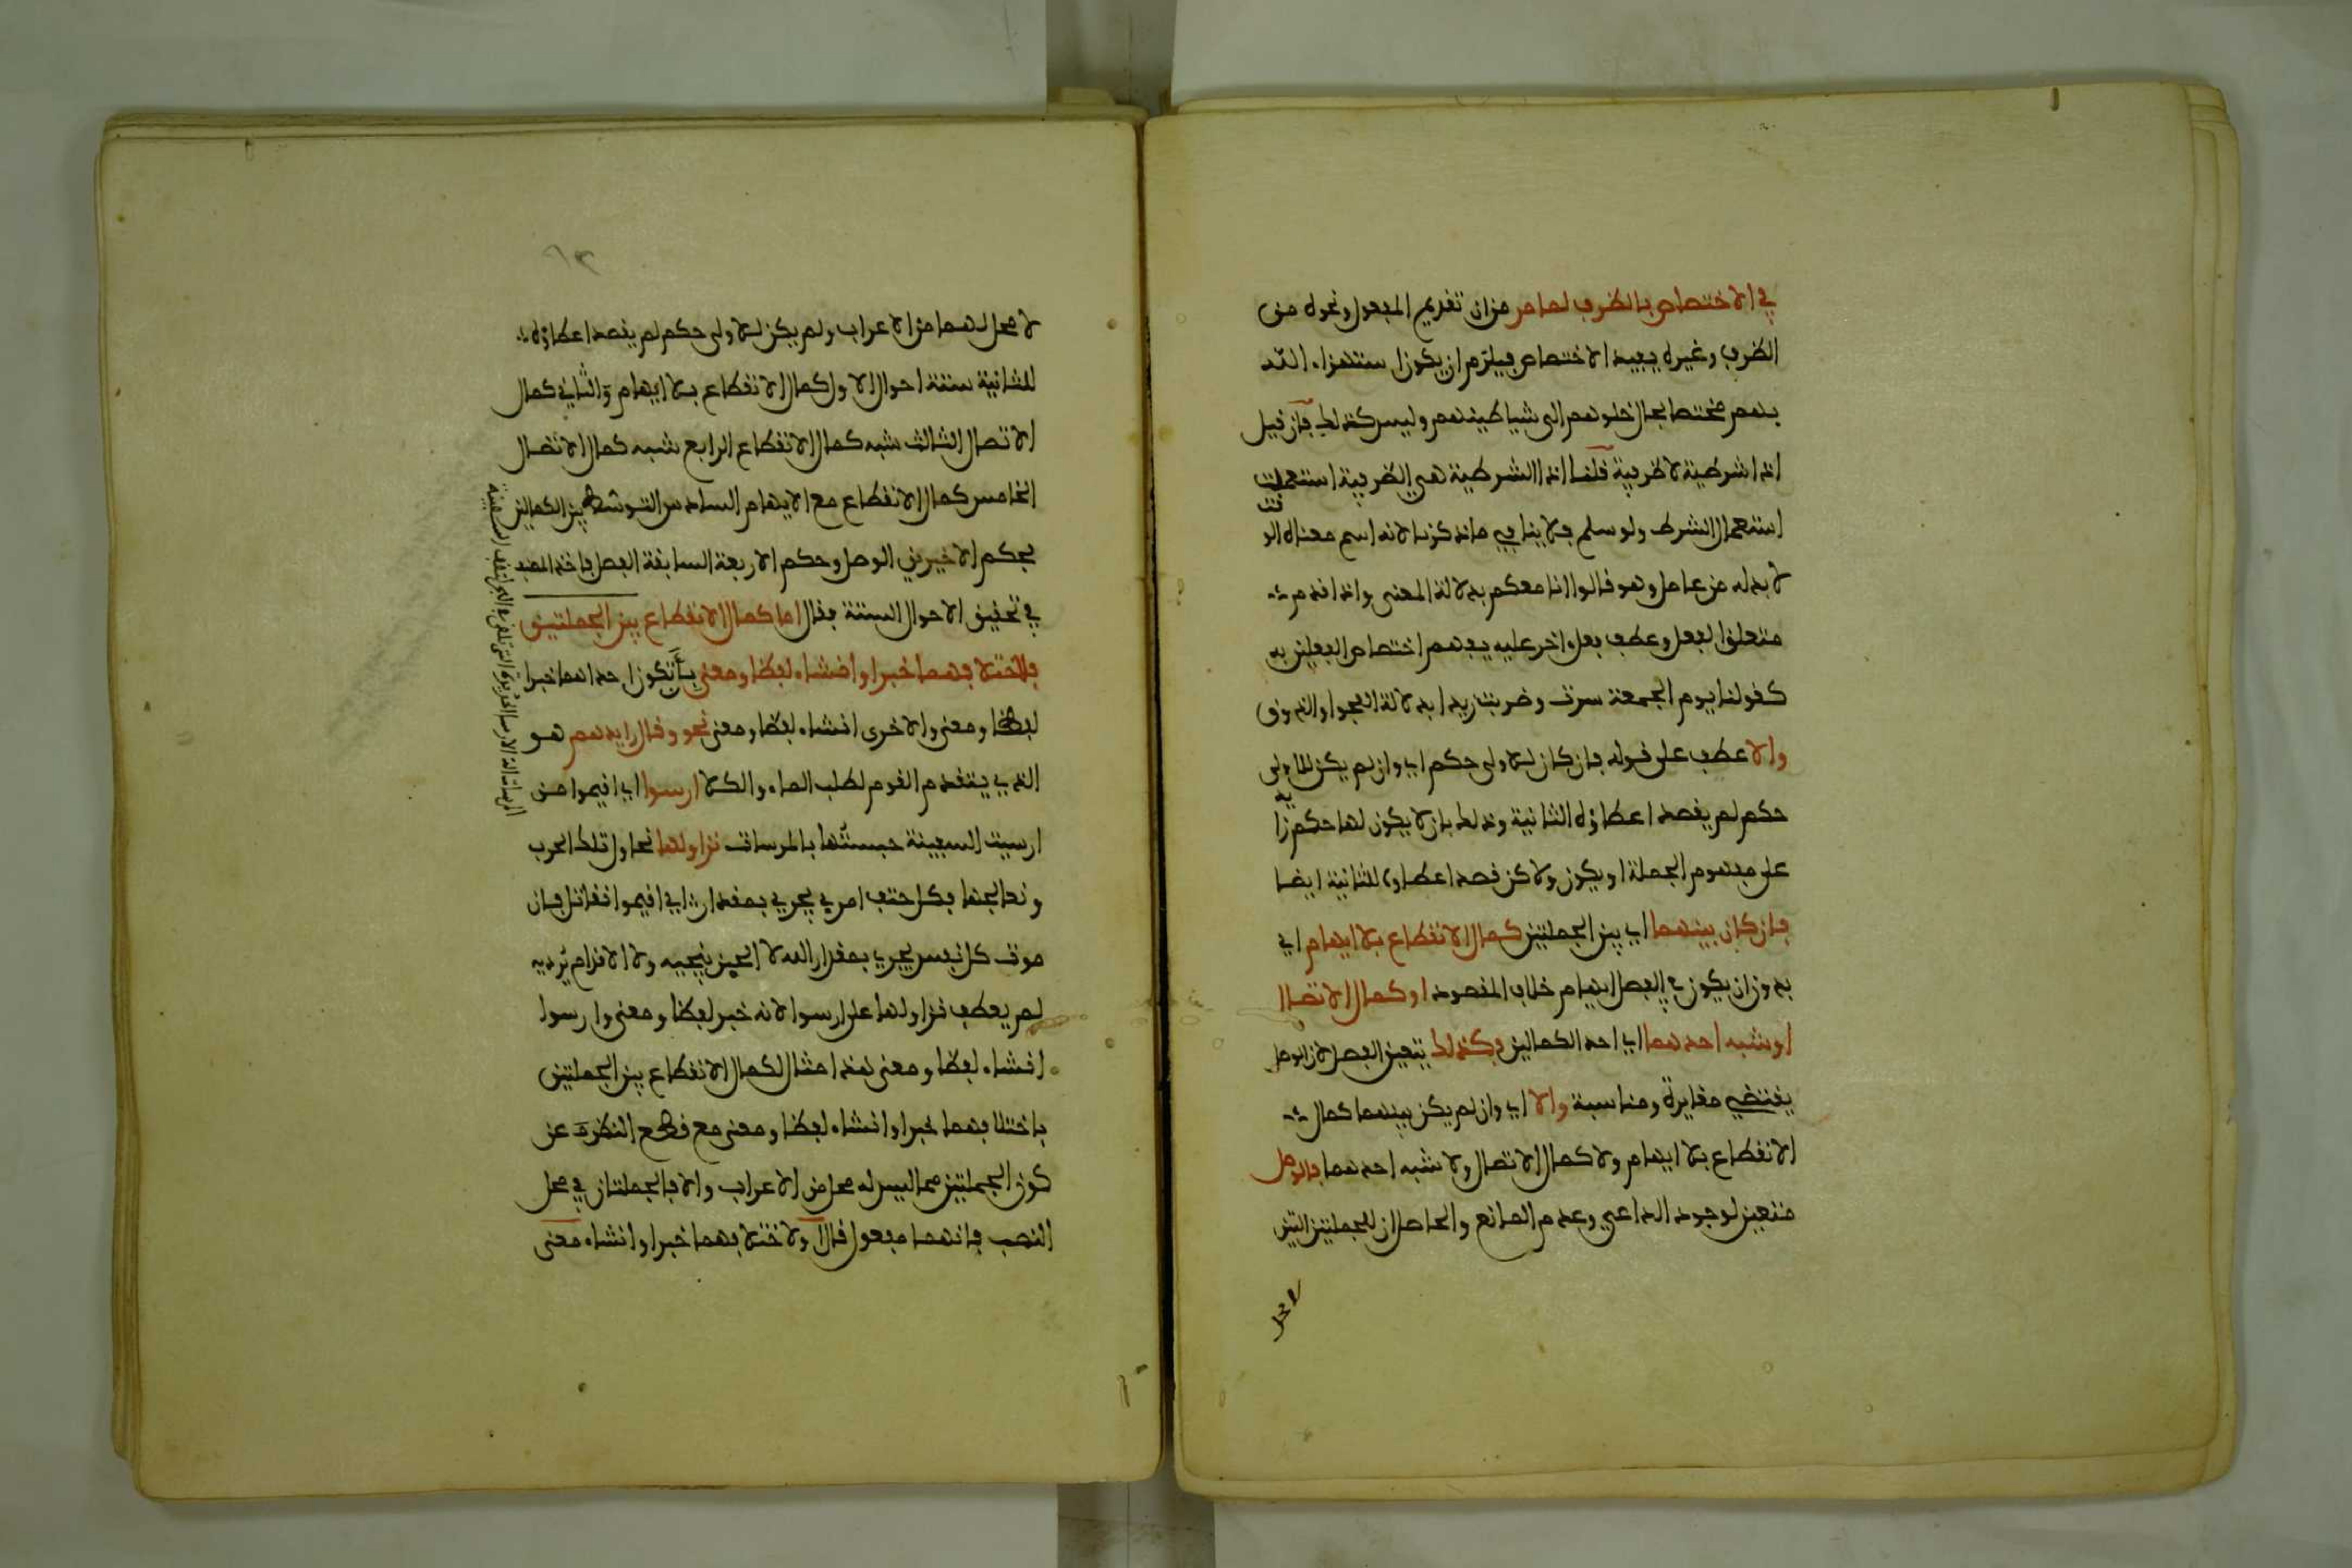 في الاختصاص بالظرف لما مر من ان تقديم المفعول ونحوه من
الظرف وغيره يفيد الاختصاص فيلزم ان يكون استهزاء الله
بهم مختصا بحال خلوهم الى شياطينهم وليس كذلك فان قيل
اذا شرطية لا ظرفية قلنا اذا الشرطية هي الظرفية استعملت
استعمال الشرط ولو سلم فلا ينافي ما ذكرنا لانه اسم معناه الوقت
لا بد له من عامل وهو قالوا انا معكم بدلالة المعنى واذا قدم
متعلق الفعل وعطف فعل اخر عليه يفهم اختصاص الفعلين به
كقولنا يوم الجمعة سرت وضربت زيدا بدلالة الفحوا والذوق
والا عطف على قوله فان كان للاولى حكم اي وان لم يكن للاولى
حكم لم يقصد اعطاؤه للثانية وذلك بان لا يكون لها حكم زايد
على مفهوم الجملة او يكون ولاكن قصد اعطاؤه للثانية ايضا
فان كان بينهما اي بين الجملتين كمال الانقطاع بلا ايهام اي
بدون ان يكون في الفصل ايهام خلاف المقصود او كمال الاتصال
او شبه احدهما اي احد الكمالين فكذلك يتعين الفصل لان الوصل
يقتضي مغايرة ومناسبة والا اي وان لم يكن بينهما كمال
الانقطاع بلا ايهام ولا كمال الاتصال ولا شبه احدهما فالوصل
متعين لوجود الداعي وعدم المانع والحاصل ان للجملتين التين
لا محل
لا محل لهما من الاعراب ولم يكن للاولى حكم لم يقصد اعطاؤه
للثانية ستة احوال الاول كمال الانقطاع بلا ايهام والثاني كمال
الاتصال الثالث شبه كمال الانقطاع الرابع شبه كمال الاتصال
الخامس كمال الانقطاع مع الايهام السادس التوسط بين الكمالين
فحكم الاخيرين الوصل وحكم الاربعة السابقة الفصل فاخذ المصنف
في تحقيق الاحوال الستة فقال اما كمال الانقطاع بين الجملتين
فلاختلافهما خبرا وانشاء لفظا ومعنى بان تكون احداهما خبرا
لفظا ومعنى والاخرى انشاء لفظا ومعنى نحو وقال رايدهم هو
الذي يتقدم القوم لطلب الماء والكلا ارسوا اي اقيموا من
ارسيت السفينة حبستها بالمرسات نزاولها نحاول تلك الحرب
ونعالجها فكل حتف امرئ يجري بمقدار اي اقيموا نقاتل فان
موت كل نفس يجري بمقدار الله لا الجبن ينجيه ولا الاقدام يرديه
لم يعطف نزاولها على ارسوا لانه خبر لفظا ومعنى وارسوا
انشاء لفظا ومعنى هذا مثال لكمال الانقطاع بين الجملتين
باختلافهما خبرا وانشاء لفظا ومعنى مع قطع النظر عن
كون الجملتين مما ليس له محل من الاعراب والا فالجملتان في محل
النصب فانهما مفعول قال او لاختلافهما خبرا وانشاء معنى